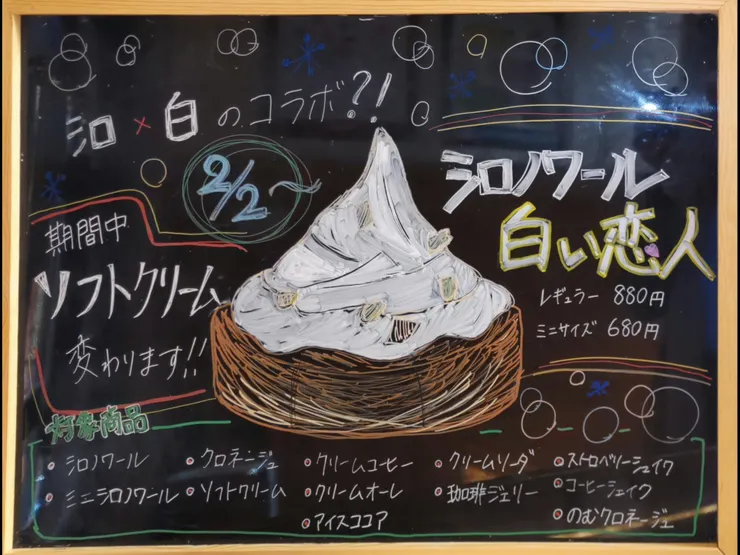 シロ×白のコラボ?!
2/2〜
シロノワール
白い恋人
レギュラー 880円
ミニサイズ 680円
期間中
ソフトクリーム
変わります!!
対象商品
・シロノワール
・ミニシロノワール
・クロネージュ
・ソフトクリーム
・クリームコーヒー
・クリームオーレ
・アイスココア
・クリームソーダ
・珈琲ジェリー
・ストロベリーシェイク
・コーヒーシェイク
・のむクロネージュ